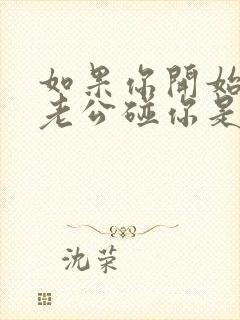 如果你開始
老公碰你是
沈荣